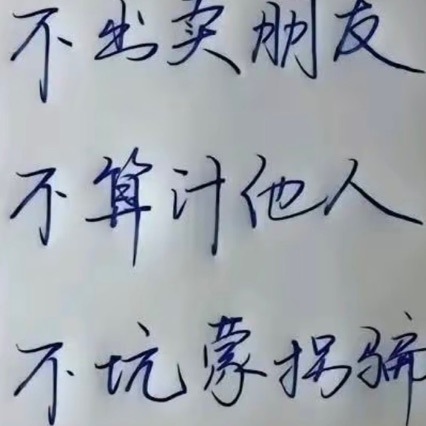 不出卖朋友
不算计他人
不坑蒙拐骗